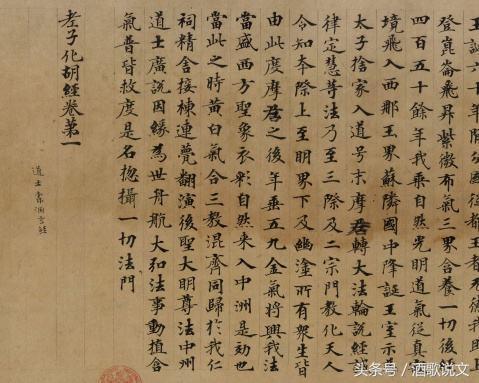 王誕六十年間分國從都王者無德我即上
登崑崙飛昇紫微布氣三界含養一切後經
四百五十餘年我乘自然光明道氣從真寂
境飛入西那玉界蘇隣國中降誕王室示為
太子捨家入道号末摩尼轉大法輪說經誡
律定慧等法乃至三際及二宗門教化天人
令知本際上至明界下及幽塗所有衆生皆
由此度摩尼之後年垂五九金氣將興我法
當盛西方聖象衣彩自然來入中洲是効也
當此之時黃白氣合三教混齊同歸於我仁
祠精舍接棟連甍翻演後聖大明尊法中州
道士廣說因緣為世舟航大弘法事動植含
氣普皆救度是名捴攝一切法門
老子化胡經卷第一
道士
头条号 / 酒歌说文